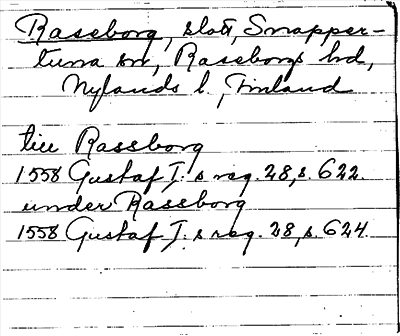 Raseborg, slott, Snapper-
tuna sn, Raseborgs hd,
Nylands l, Finland
till Rassborg
1558 Gustaf I:s reg. 28, s. 622.
under Rassborg
1558 Gustaf I:s reg. 28, s. 624.